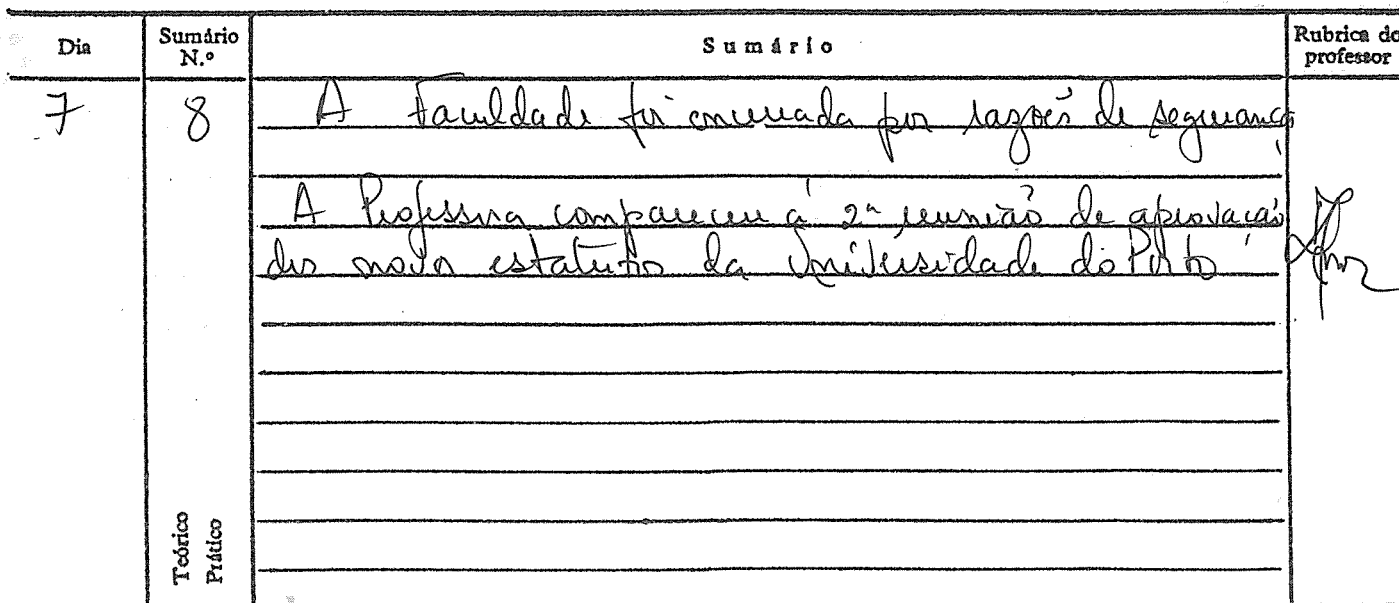 Dia Sumário N.º Sumário Rubrica do professor
7 8 A Faculdade foi encerrada por razões de segurança
A Professora compareceu à 2ª reunião de aprovação
dos novos estatutos da Universidade do Porto
Teórico
Prático